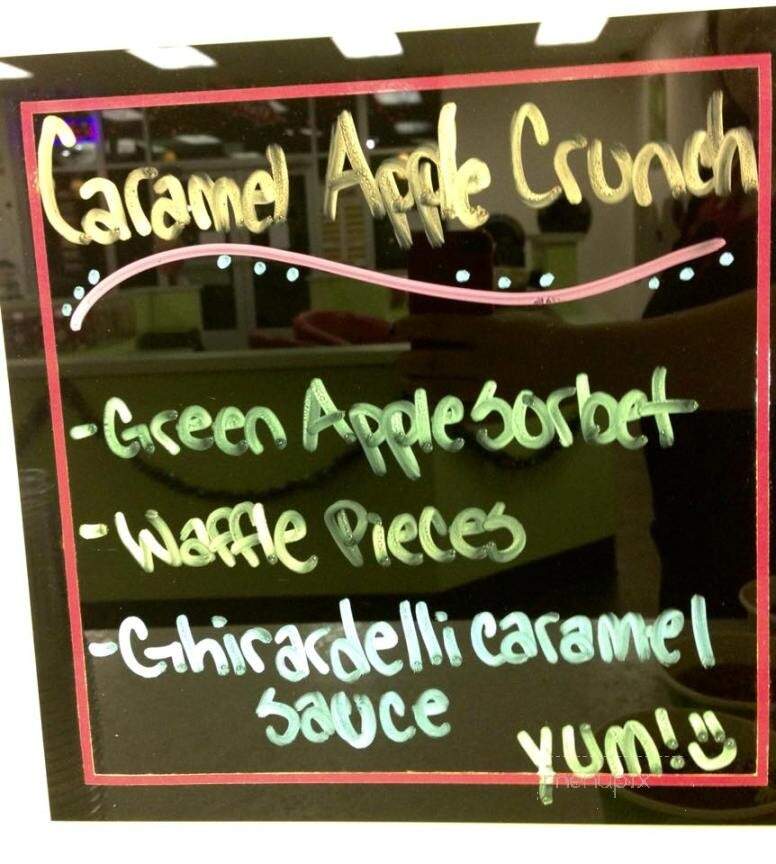 Caramel Apple Crunch
-Green Apple Sorbet
-Waffle Pieces
-Ghirardelli caramel
sauce
yum!
menupix